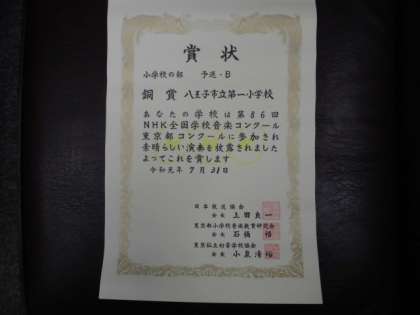 賞状
小学校の部 予選・B
銅賞 八王子市立第一小学校
あなたの学校は第86回
NHK全国学校音楽コンクール
東京都コンクールに参加され
素晴らしい演奏を披露されました
よってこれを賞します
令和元年7月21日
日本放送協会
会長 上田良一
東京都小学校音楽教育研究会
会長 石橋
東京私立初等学校協会
会長 小泉清裕